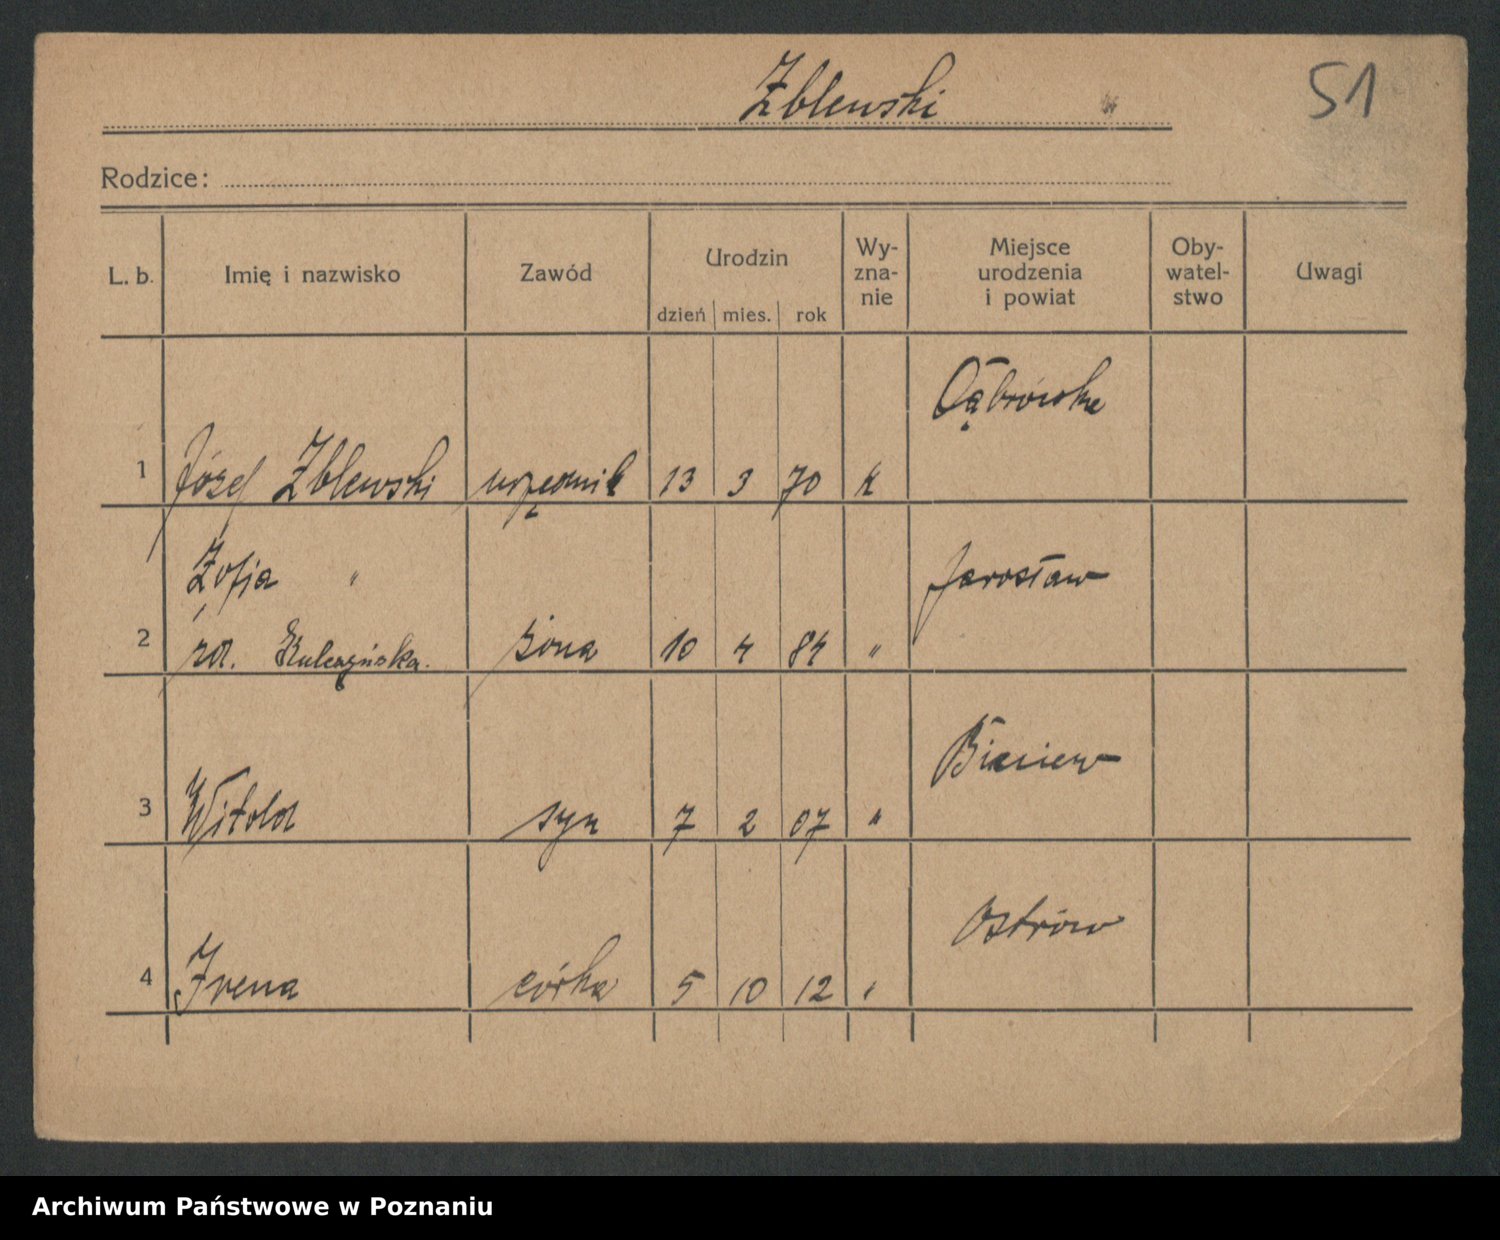 Zblewski
51
Rodzice:
L. b. Imię i nazwisko Zawód Urodzin dzień mies. rok Wy-zna-nie Miejsce urodzenia i powiat Oby-watel-stwo Uwagi
Dąbrówka
1 Józef Zblewski urzędnik 13 3 70 k
Zofja " Jarosław
2 żona 10 4 84 "
3 Witold syn 7 2 07 "
Ostrów
4 Irena córka 5 10 12 "
Archiwum Państwowe w Poznaniu